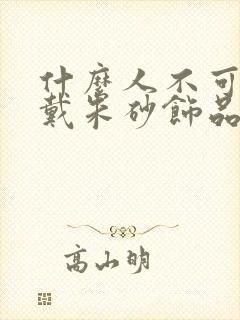 什麼人不可
戴朱砂飾品
高山明